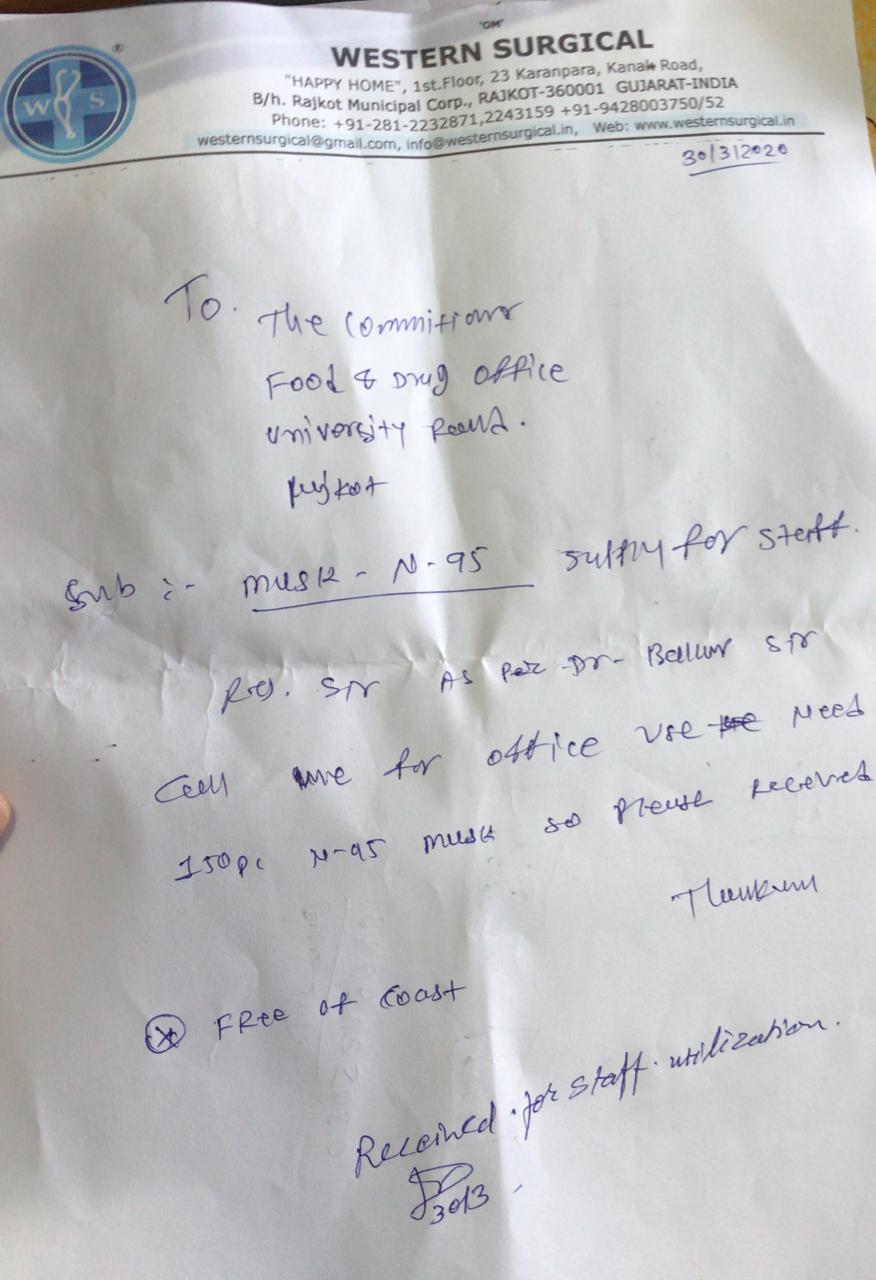 "OM"
WESTERN SURGICAL
"HAPPY HOME", 1st.Floor, 23 Karanpara, Kanak Road,
B/h. Rajkot Municipal Corp., RAJKOT-360001 GUJARAT-INDIA
Phone: +91-281-2232871,2243159 +91-9428003750/52
westernsurgical@gmail.com, info@westernsurgical.in, Web: www.westernsurgical.in
W S
®
30/3/2020
To.
The
Food & Drug office
University Road.
Rajkot
Sub :- musk - N-95 supply for staff.
Res. Sir As per Dr- Sir
Call me for office use Need
150pc N-95 musk so please received
Thankyou
FRee of Coast
Received for staff utilization.
30/3